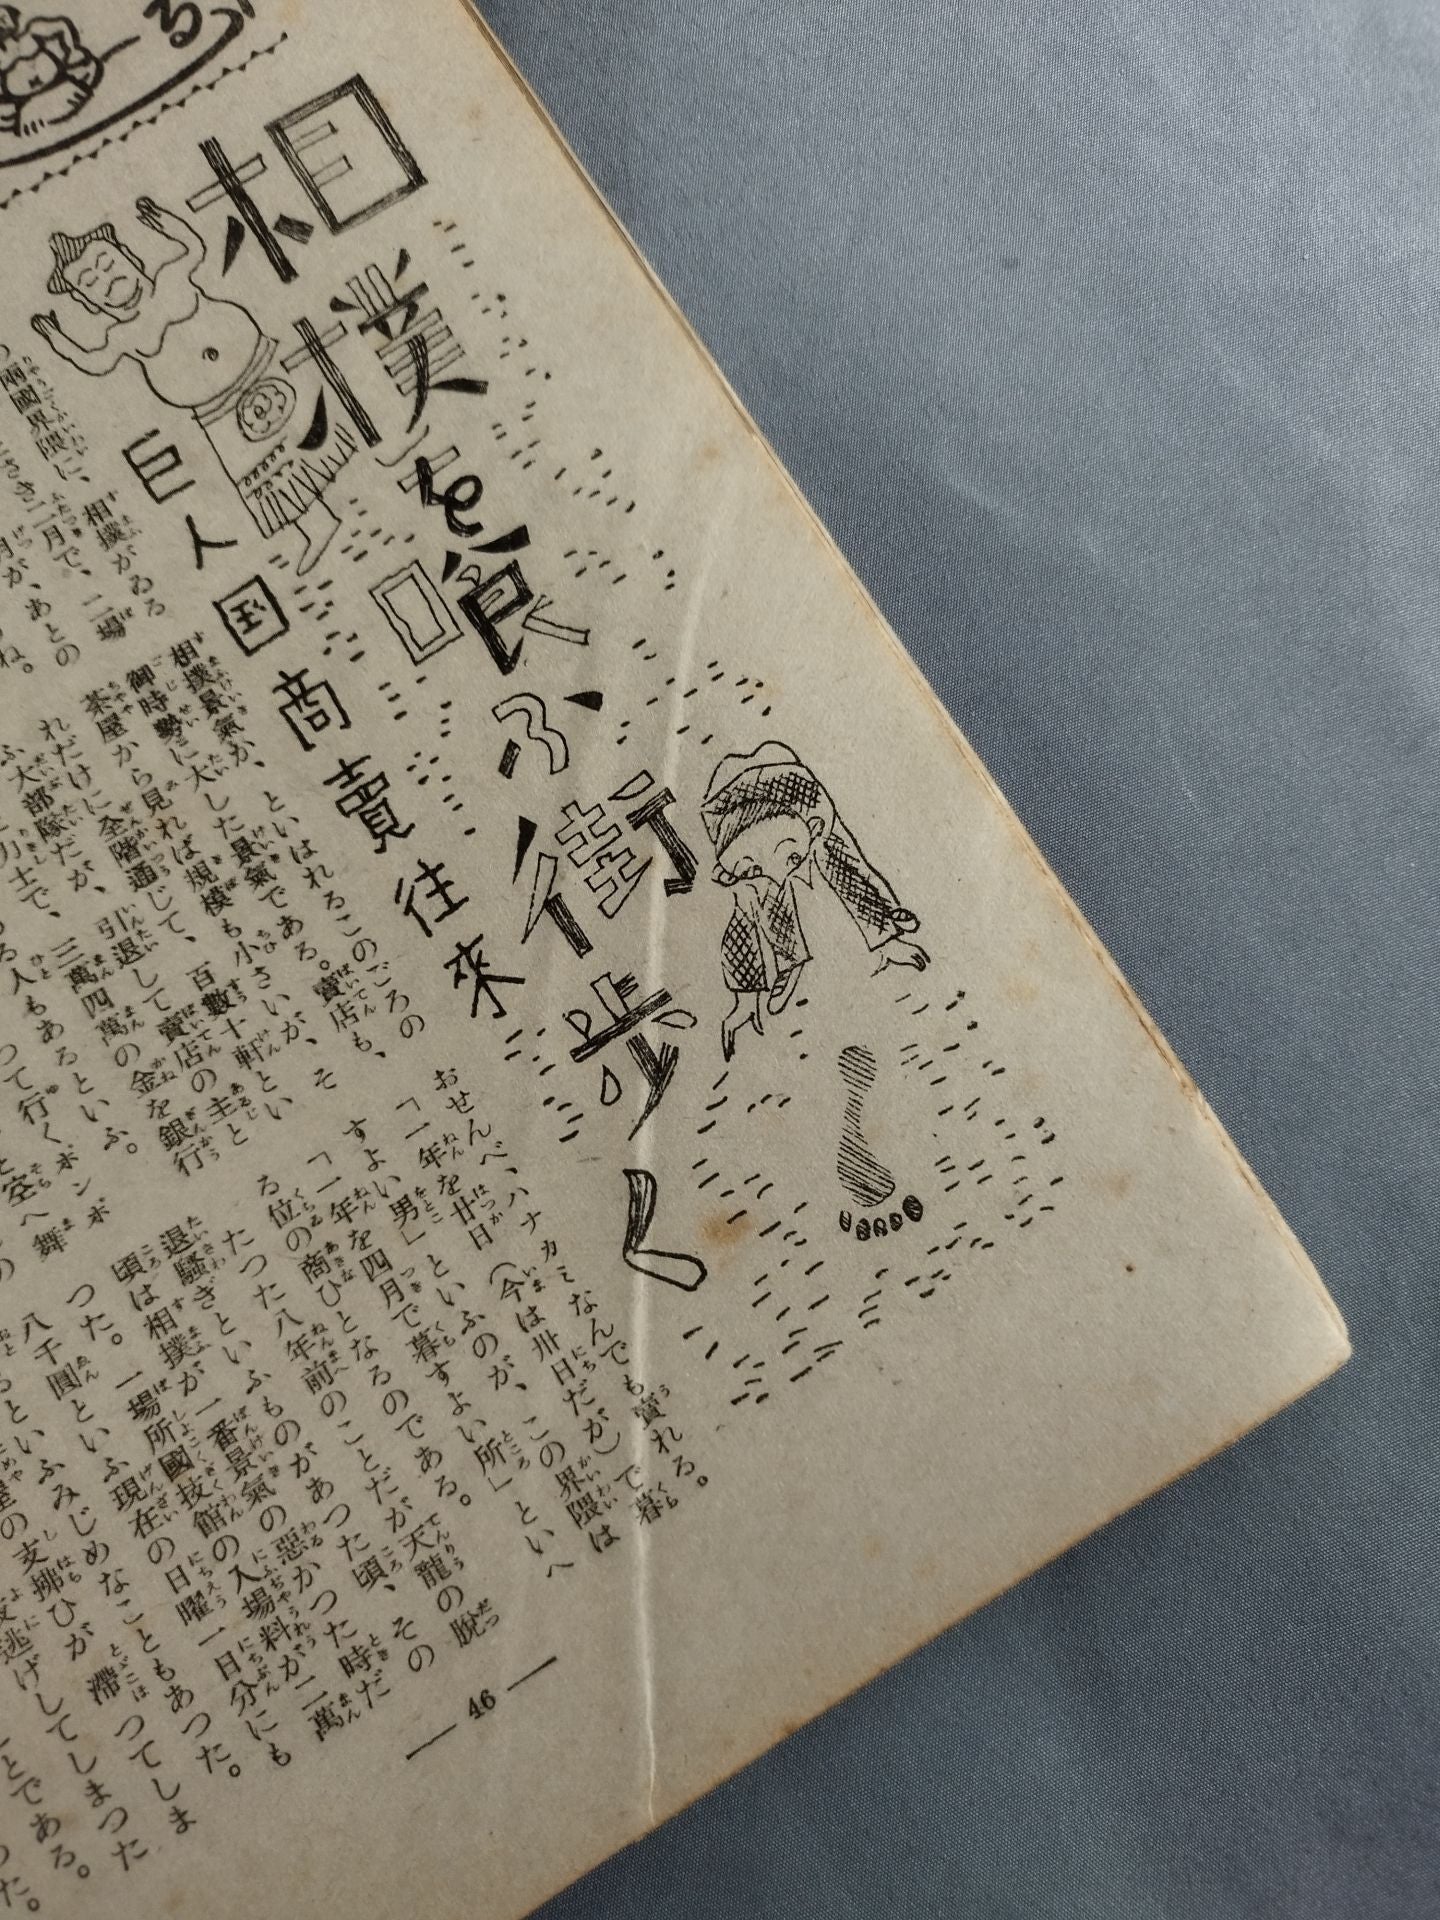 る
相撲を喰ふ街歩く
巨人国商賣往來
兩國界隈に、相撲がゐる
さき二月で、二場
月が、あとの
ね。
相撲景氣が、といはれるこのごろの
御時勢に大した景氣である。賣店も、
茶屋から見れば規模も小さいが、そ
れだけに全階通じて、百數十軒とい
ふ大部隊だが、引退して賣店の主と
力士で、三萬四萬の金を銀行
る人もあるといふ。
つて行くボンボ
と空へ舞
おせんべ、ハナカミなんでも賣れる。
「一年を廿日(今は卅日だが)で暮
すよい男」といふのが、この界隈は
「一年を四月で暮すよい所」といへ
る位の商ひとなるのである。
たつた八年前のことだが、天龍の脱
退騒ぎといふものがあつた頃、その
頃は相撲が一番景氣の惡かつた時だ
つた。一場所國技館の入場料が二萬
八千圓といふ、現在の日曜一日分にも
らといふみじめなこともあつた。
屋の支拂ひが滯つてしま
逃げしてしまつた
とである。
つた。
— 46 —